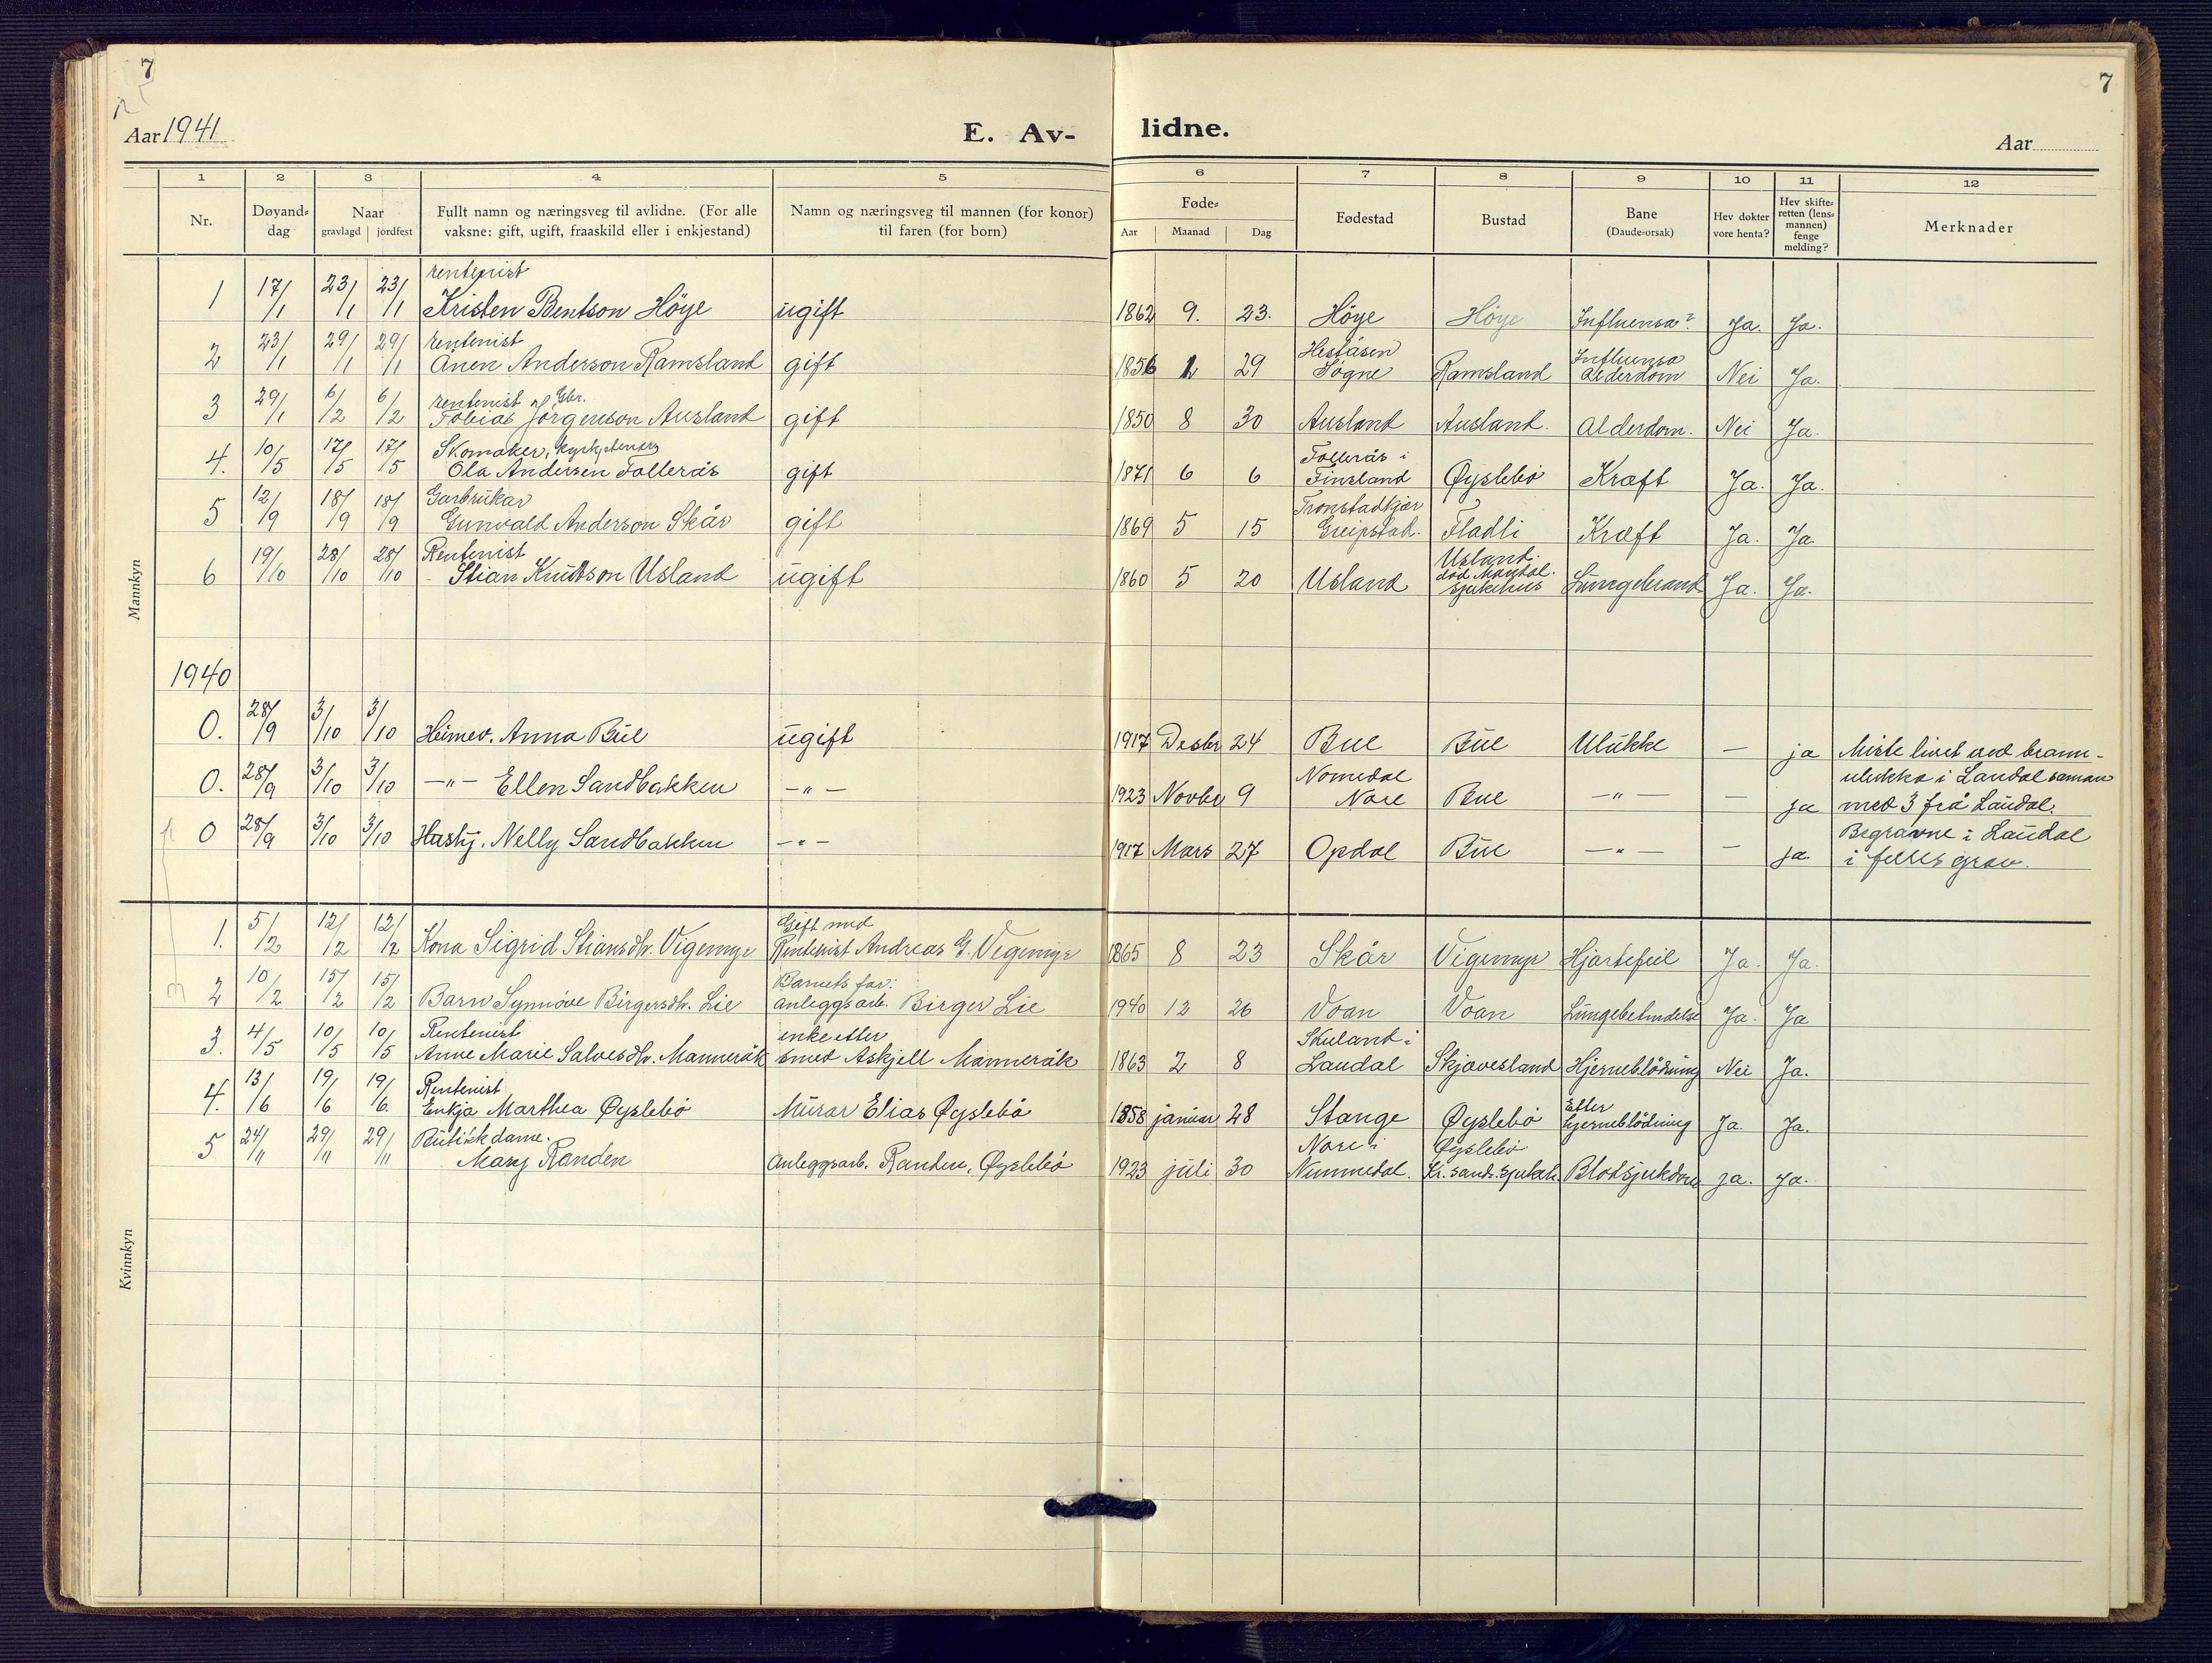 7
7
Aar 1941
E. Av-
lidne.
Aar
1 2 3 4 5 6 7 8 9 10 11 12
Nr.
Døyand-
dag
Naar
gravlagd | jordfest
Fullt namn og næringsveg til avlidne. (For alle
vaksne: gift, ugift, fraaskild eller i enkjestand)
Namn og næringsveg til mannen (for konor)
til faren (for born)
Føde-
Aar Maanad Dag
Fødestad
Bustad
Bane
(Daude-orsak)
Hev dokter
vore henta?
Hev skifte-
retten (lens-
mannen)
fenge
melding?
Merknader
Mannkyn
rentenist
1 17/1 23/1 23/1 Kristen Bentson Höye ugift 1862 9. 23. Höye Höye Influensa? Ja. Ja.
rentenist Heståsen Influensa
2 23/1 29/1 29/1 Ånen Anderson Ramsland gift 1856 1 29 Søgne Ramsland Alderdom Nei Ja.
rentenist Gbr.
3 29/1 6/2 6/2 Tobias Jörgenson Ausland gift 1850 8 30 Ausland Ausland. Alderdom. Nei Ja.
Skomaker, kyrkjetenar Follerås i
4. 10/5 17/5 17/5 Ola Andersen Follerås gift 1871 6 6 Finsland Øyslebö Kræft Ja. Ja.
Garbrukar Tronstadkjær
5 12/9 18/9 18/9 Gunvald Anderson Skår gift 1869 5 15 Greipstad. Fladli Kræft Ja. Ja.
Rentenist Usland.
död Mandal.
6 19/10 28/10 28/10 Stian Knutson Usland ugift 1860 5 20 Usland sjukehus Lungebrand Ja. Ja.
1940
0. 28/9 3/10 3/10 Heimev. Anna Bue ugift 1917 Desbr 24 Bue Bue Ulukke — ja Miste livet ved brann-
Nomedal ulukka i Laudal saman
0. 28/9 3/10 3/10 —"— Ellen Sandbakken —"— 1923 Novbr 9 Nore Bue —"— — ja med 3 frå Laudal.
Begravne i Laudal
0 28/9 3/10 3/10 Hushj. Nelly Sandbakken —"— 1917 Mars 27 Opdal Bue —"— — ja. i felles grav.
Kvinnkyn
Gift med
1. 5/2 12/2 12/2 Kona Sigrid Stiansdtr. Vigemyr Rentenist Andreas G. Vigemyr 1865 8 23 Skår Vigemyr Hjartefeil Ja. Ja.
Barnets far:
2 10/2 15/2 15/2 Barn Synnöve Birgersdtr. Lie anleggsarb. Birger Lie 1940 12 26 Voan Voan Lungebetendelse Ja. Ja
Rentenist enke etter Skuland i
3. 4/5 10/5 10/5 Anne Marie Salvesdtr. Manneråk smed Askjell Manneråk 1863 2 8 Laudal Skjævesland Hjerneblödning Nei Ja.
Rentenist Etter
4. 13/6 19/6 19/6. Enkja Marthea Øyslebö Murar Elias Øyslebö 1858 januar 28 Stange Øyslebö hjerneblödning Ja. Ja.
Butikkdame. Nore i Øyslebö
5 24/11 29/11 29/11 Mary Randen Anleggsarb. Randen, Øyslebö 1923 juli 30 Nummedal. Kr.sand. sjukeh. Blodsjukdom ja. ja.